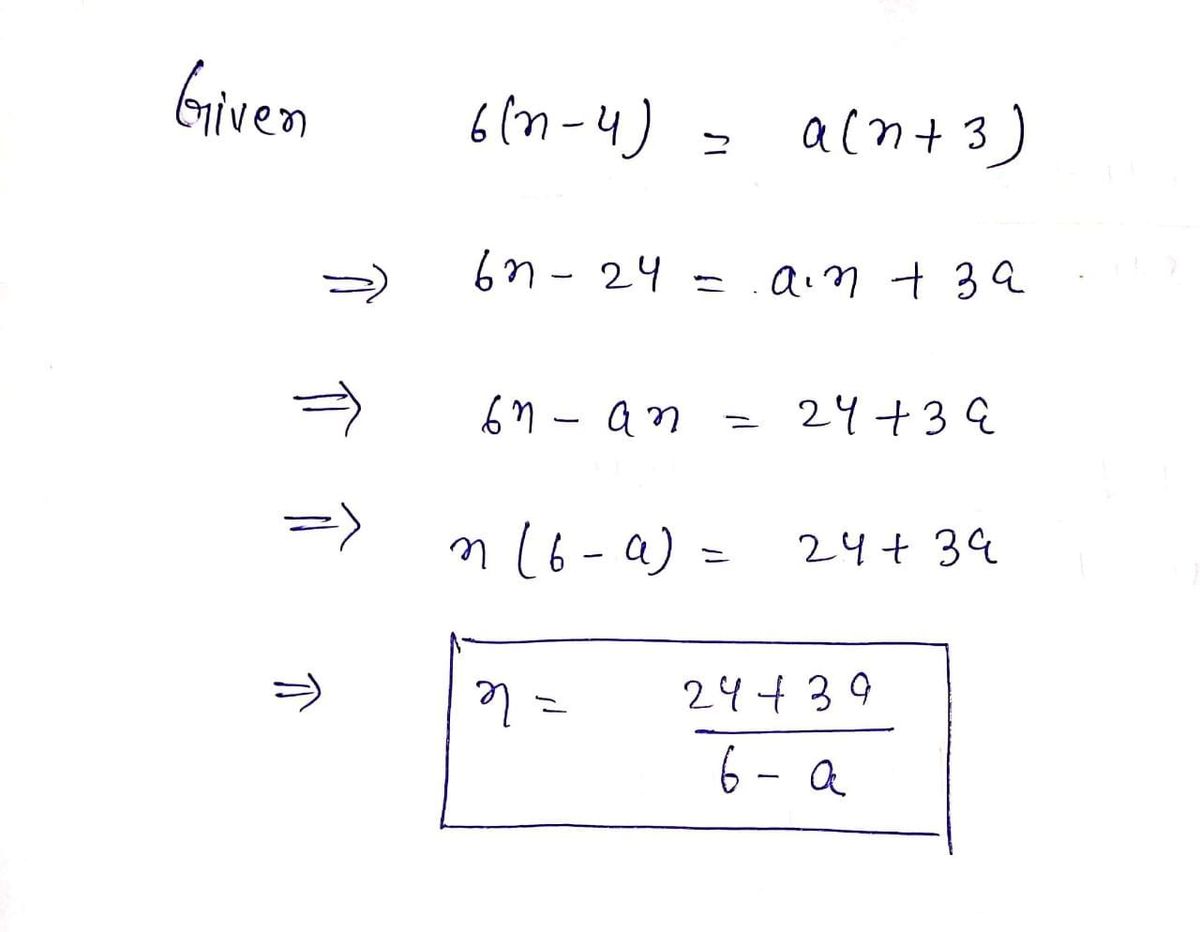 Given 6(n-4) = a(n+3)
=> 6n - 24 = a.n + 3a
=> 6n - an = 24+3a
=> n(6-a) = 24+3a
=> n = 24+3a
6-a